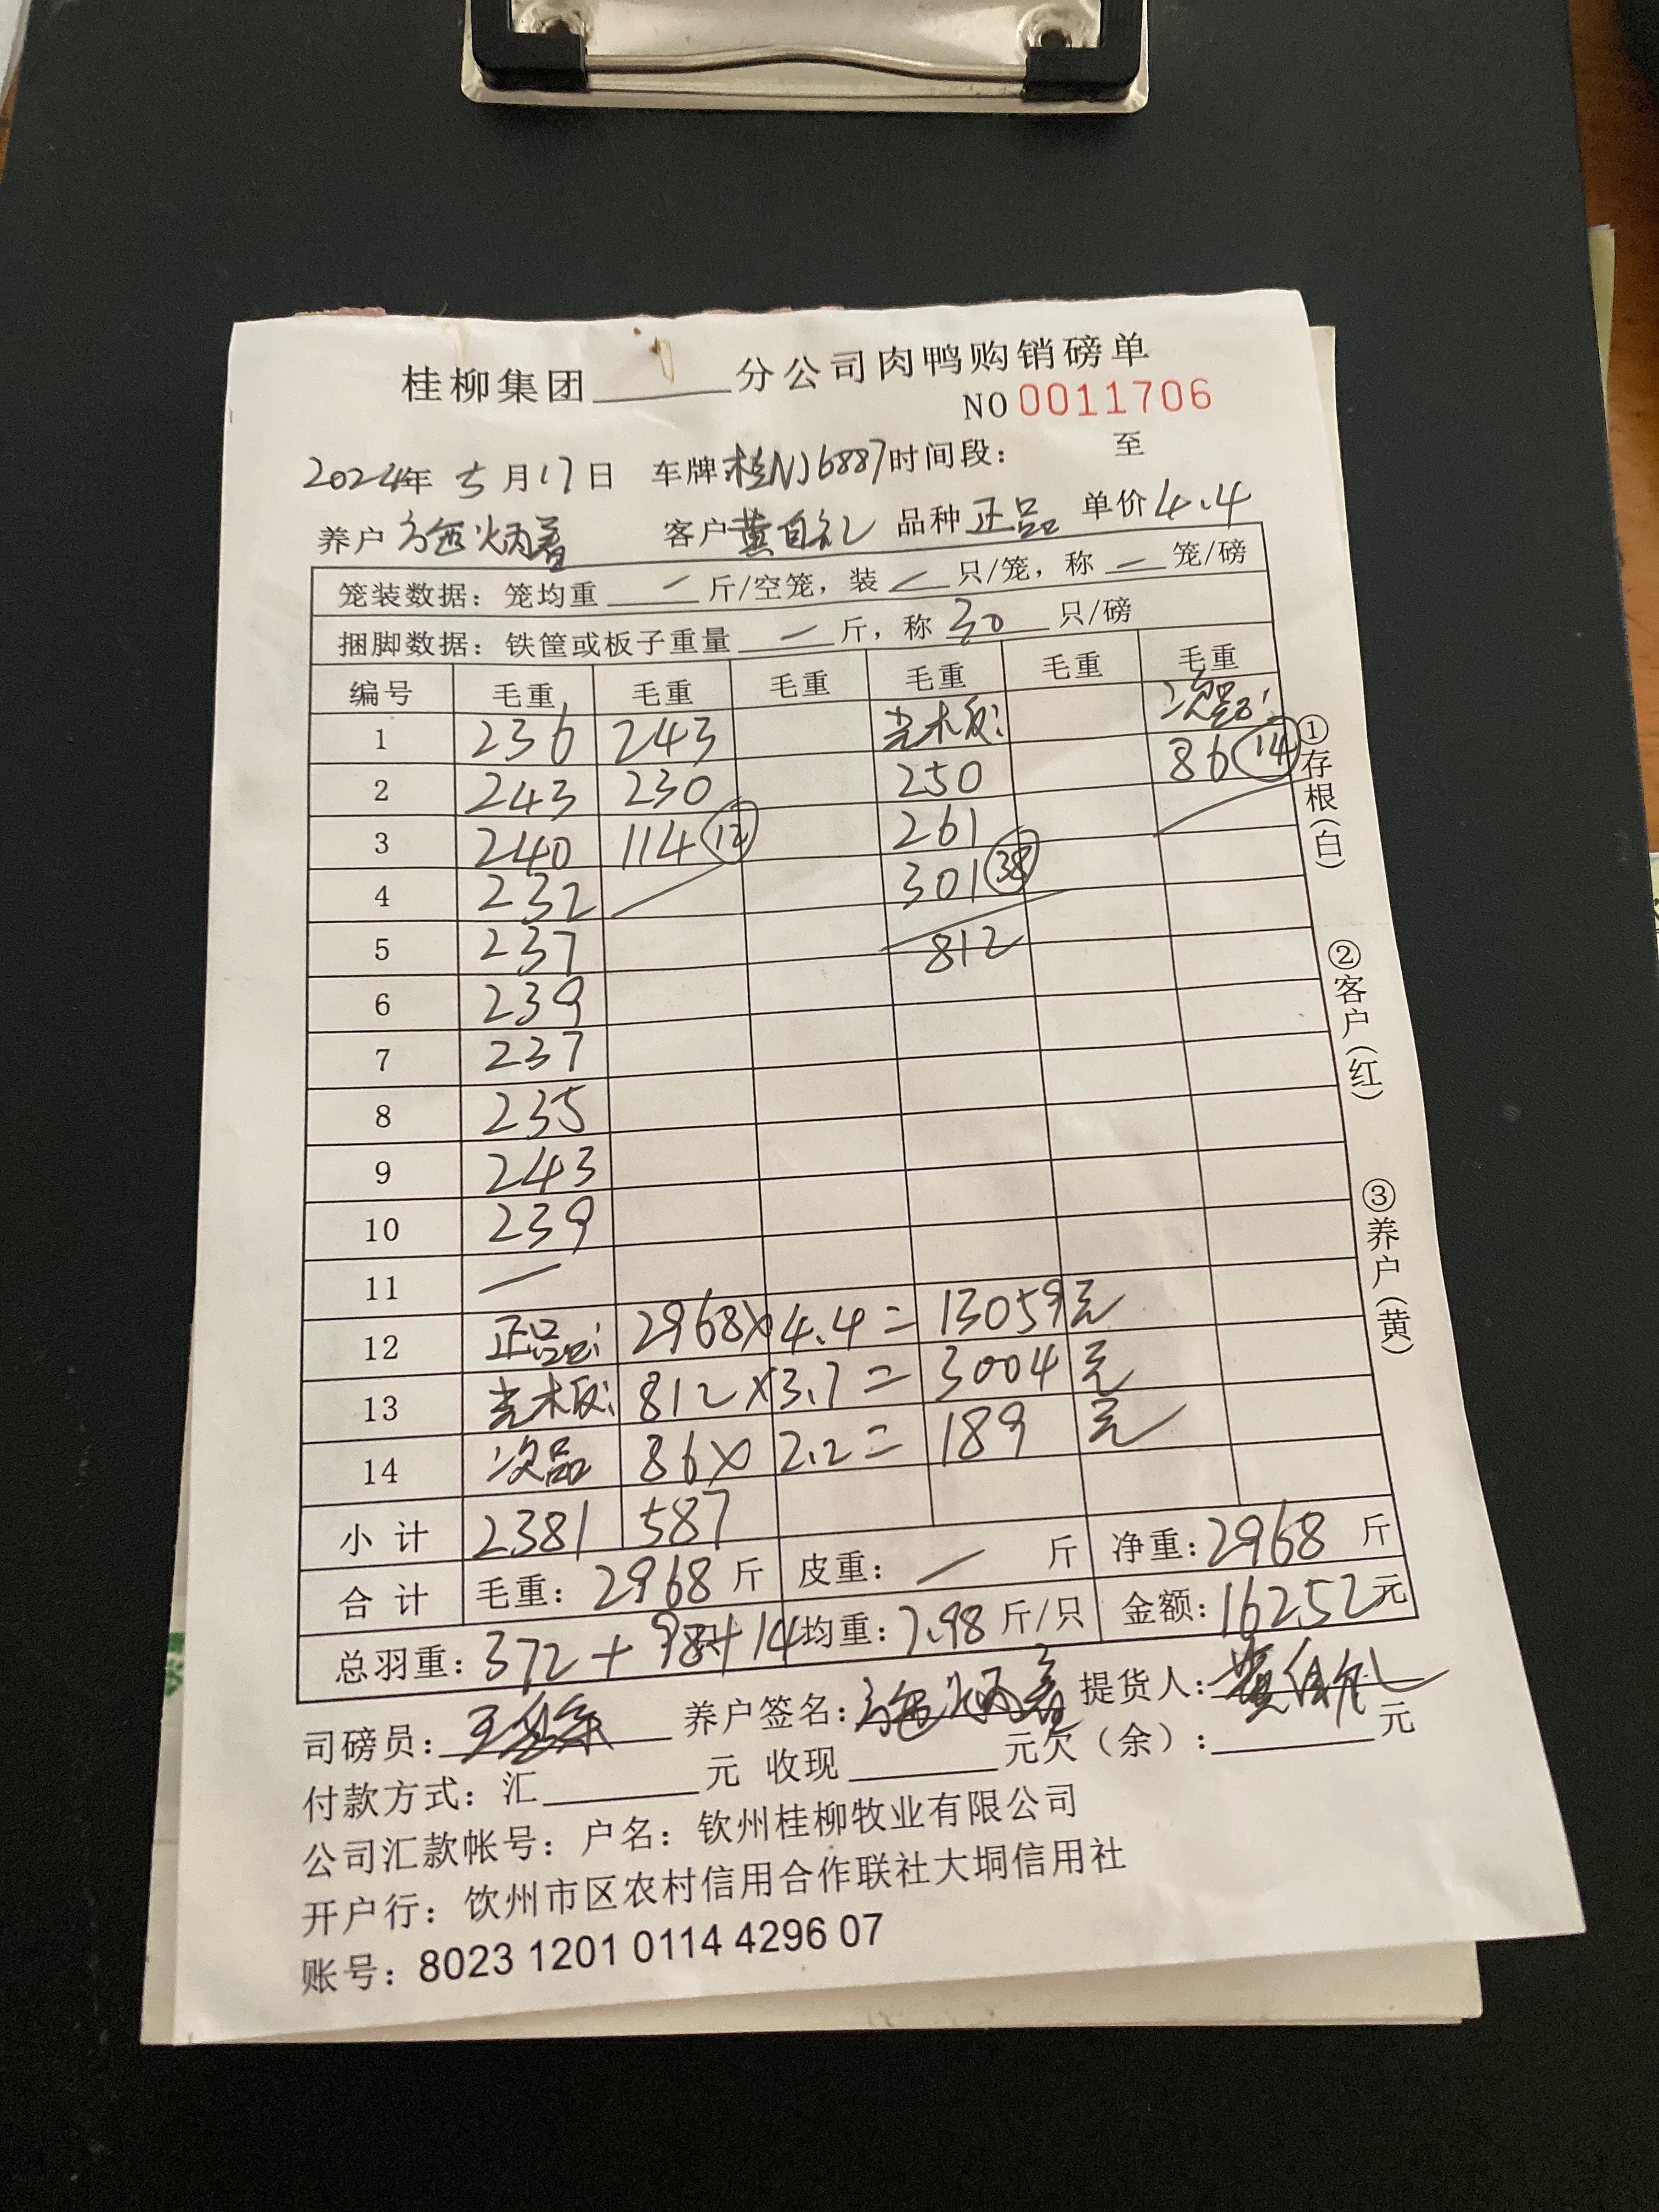 桂柳集团______分公司肉鸭购销磅单
NO 0011706
2024年 5月17日 车牌:桂NJ6887 时间段: 至
养户 施炳善 客户 黄自礼 品种 正品 单价 4.4
笼装数据: 笼均重 — 斤/空笼, 装 — 只/笼, 称 — 笼/磅
捆脚数据: 铁筐或板子重量 — 斤, 称 30 只/磅
编号 毛重 毛重 毛重 毛重 毛重 毛重
1 236 243 光木板: 次品:
2 243 230 250 86 (14)
3 240 114 (12) 261
4 232 301 (38)
5 237 812
6 239
7 237
8 235
9 243
10 239
11 —
12 正品: 2968×4.4= 13059元
13 光木板: 812×3.7= 3004元
14 次品 86× 2.2= 189 元
小计 2381 587
合计 毛重: 2968 斤 皮重: — 斤 净重: 2968 斤
总羽重: 372+98只+14 均重: 7.98 斤/只 金额: 16252元
司磅员: 养户签名: 施炳善 提货人:
付款方式: 汇______元 收现______元欠(余):______元
公司汇款帐号: 户名: 钦州桂柳牧业有限公司
开户行: 饮州市区农村信用合作联社大垌信用社
账号: 8023 1201 0114 4296 07
①存根(白)
②客户(红)
③养户(黄)